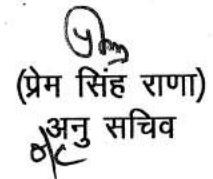 (प्रेम सिंह राणा)
अनु सचिव